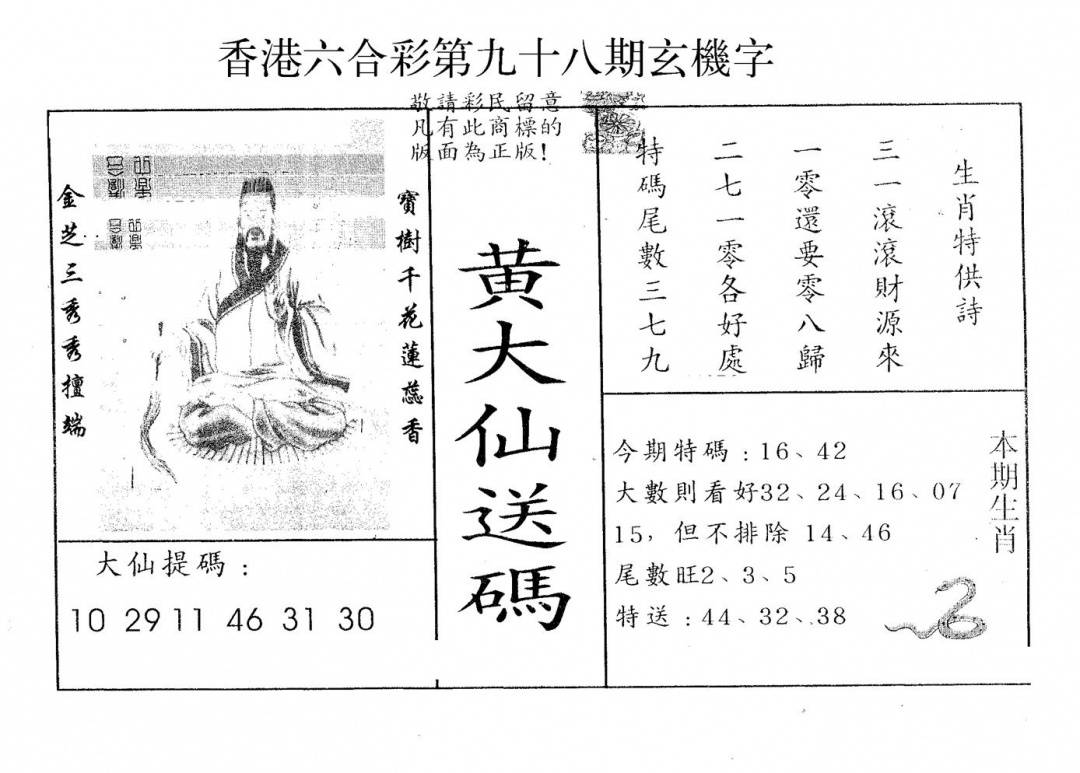 香港六合彩第九十八期玄機字
敬請彩民留意
凡有此商標的
版面為正版！
寶樹千花蓮蕊香
金芝三秀秀擅端
大仙提碼：
10 29 11 46 31 30
黄大仙送碼
生肖特供詩
三一滾滾財源來
一零還要零八歸
二七一零各好處
特碼尾數三七九
今期特碼：16、42
大數則看好32、24、16、07
15，但不排除 14、46
尾數旺2、3、5
特送：44、32、38
本期生肖